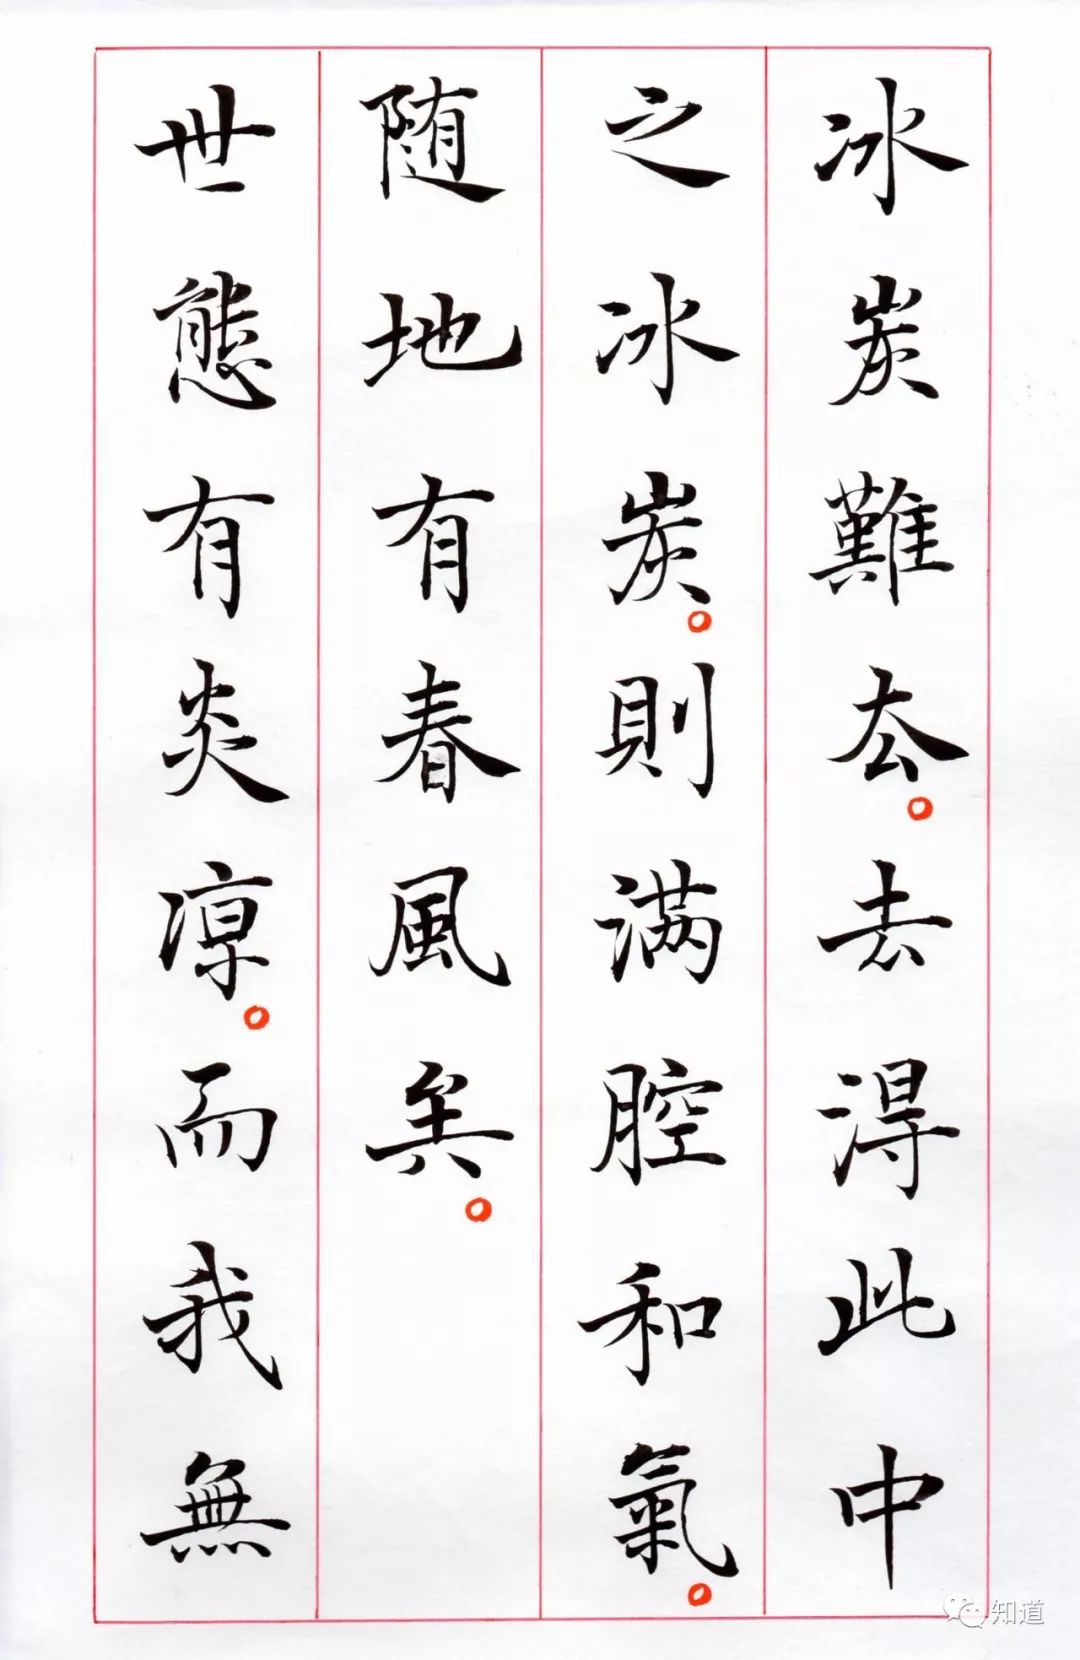 冰炭難厺。去淂此中
之冰炭。則满腔和氣。
随地有春風矣。
世態有炎凉。而我無
知道